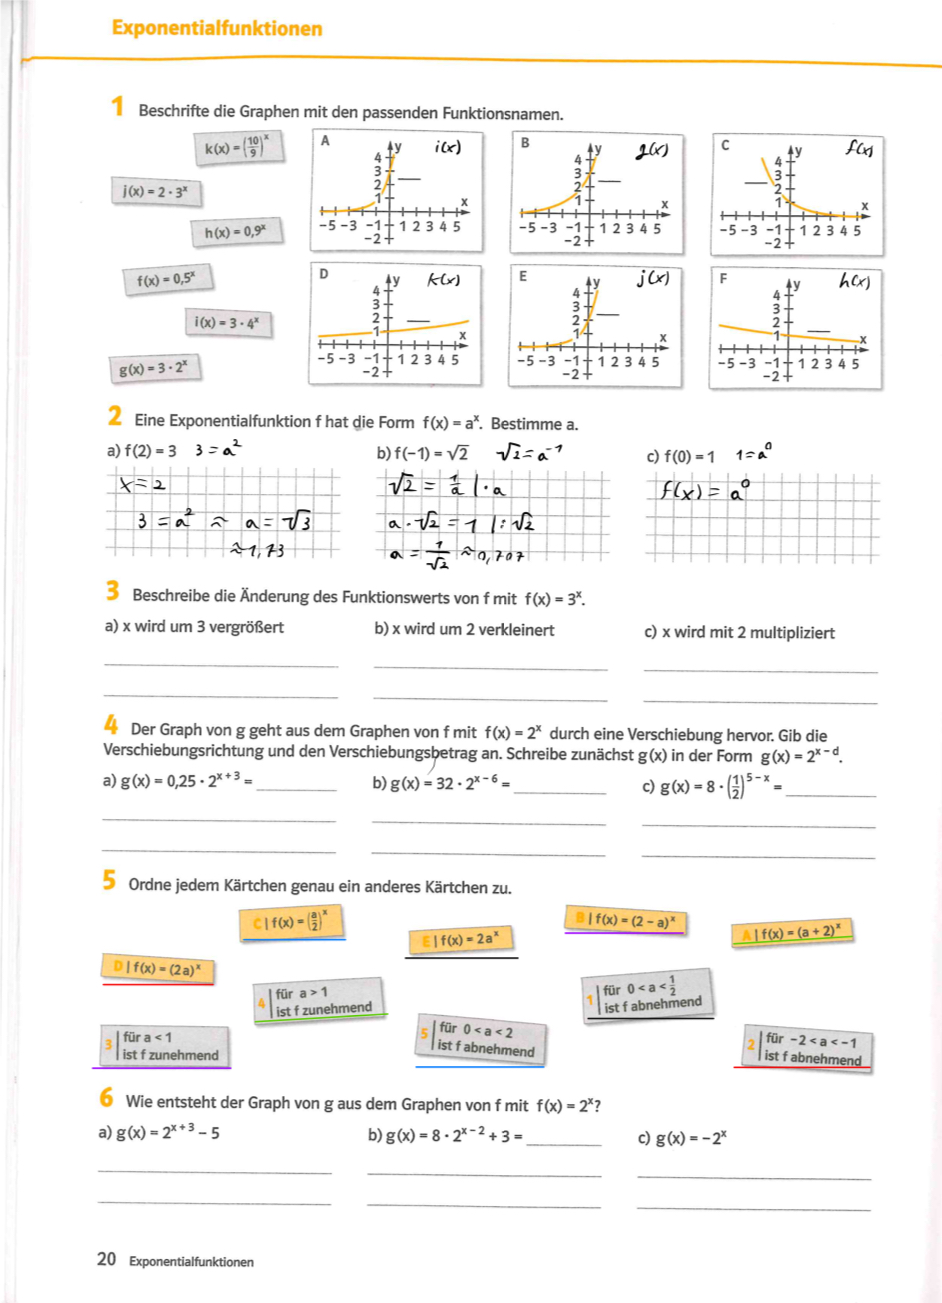 Exponentialfunktionen
1 Beschrifte die Graphen mit den passenden Funktionsnamen.
k(x) = (10/9)^x
j(x) = 2 · 3^x
h(x) = 0,9^x
f(x) = 0,5^x
i(x) = 3 · 4^x
g(x) = 3 · 2^x
A y i(x)
4
3
2
1
x
-5 -3 -1 1 2 3 4 5
-2
B y g(x)
4
3
2
1
x
-5 -3 -1 1 2 3 4 5
-2
C y f(x)
4
3
2
1
x
-5 -3 -1 1 2 3 4 5
-2
D y k(x)
4
3
2
1
x
-5 -3 -1 1 2 3 4 5
-2
E y j(x)
4
3
2
1
x
-5 -3 -1 1 2 3 4 5
-2
F y h(x)
4
3
2
1
x
-5 -3 -1 1 2 3 4 5
-2
2 Eine Exponentialfunktion f hat die Form f(x) = a^x. Bestimme a.
a) f(2) = 3 3 = a^2
x = 2
3 = a^2 ≈ a = √3
≈ 1,73
b) f(−1) = √2 √2 = a^-1
√2 = 1/a | · a
a · √2 = 1 | : √2
a = 1/√2 ≈ 0,707
c) f(0) = 1 1 = a^0
f(x) = a^0
3 Beschreibe die Änderung des Funktionswerts von f mit f(x) = 3^x.
a) x wird um 3 vergrößert
b) x wird um 2 verkleinert
c) x wird mit 2 multipliziert
4 Der Graph von g geht aus dem Graphen von f mit f(x) = 2^x durch eine Verschiebung hervor. Gib die
Verschiebungsrichtung und den Verschiebungsbetrag an. Schreibe zunächst g(x) in der Form g(x) = 2^(x − d).
a) g(x) = 0,25 · 2^(x + 3) =
b) g(x) = 32 · 2^(x − 6) =
c) g(x) = 8 · (1/2)^(5 − x) =
5 Ordne jedem Kärtchen genau ein anderes Kärtchen zu.
C | f(x) = (a/2)^x
E | f(x) = 2a^x
B | f(x) = (2 − a)^x
A | f(x) = (a + 2)^x
D | f(x) = (2a)^x
4 | für a > 1
ist f zunehmend
1 | für 0 < a < 1/2
ist f abnehmend
3 | für a < 1
ist f zunehmend
5 | für 0 < a < 2
ist f abnehmend
2 | für −2 < a < −1
ist f abnehmend
6 Wie entsteht der Graph von g aus dem Graphen von f mit f(x) = 2^x?
a) g(x) = 2^(x + 3) − 5
b) g(x) = 8 · 2^(x − 2) + 3 =
c) g(x) = −2^x
20 Exponentialfunktionen